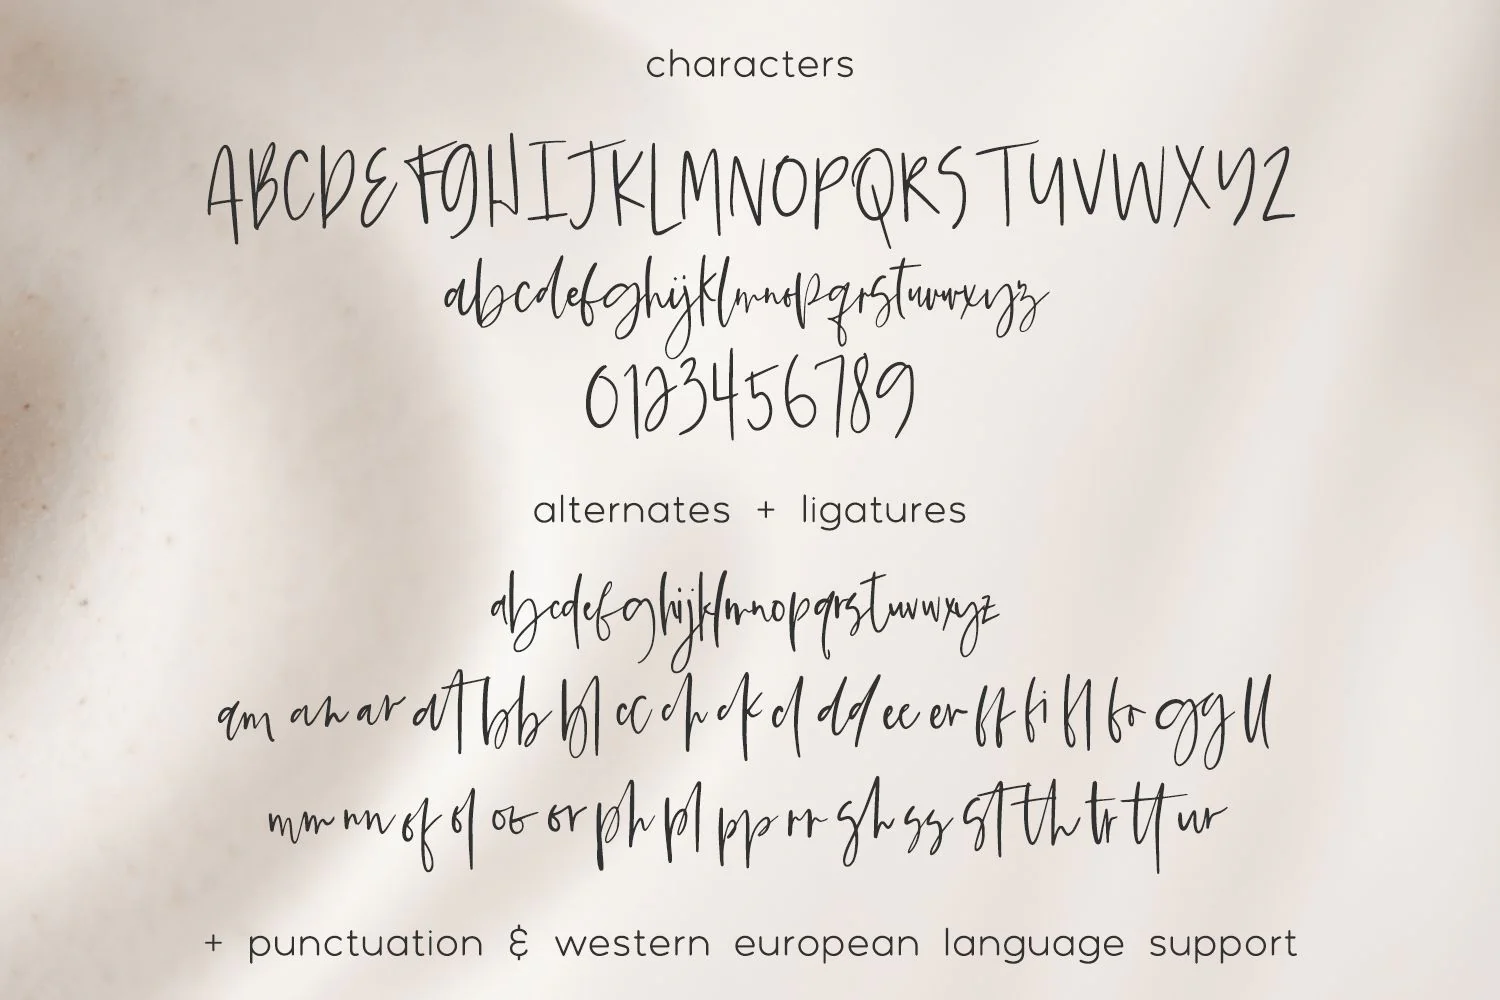 characters
ABCDEFGHIJKLMNOPQRSTUVWXYZ
abcdefghijklmnopqrstuvwxyz
0123456789
alternates + ligatures
abcdefghijklmnopqrstuvwxyz
am an ar at bb bl cc ch ck cl dd ee er ff fi fl fr gg ll
mm nn of ol oo or ph pl pp rr sh ss st th tr tt ur
+ punctuation & western european language support